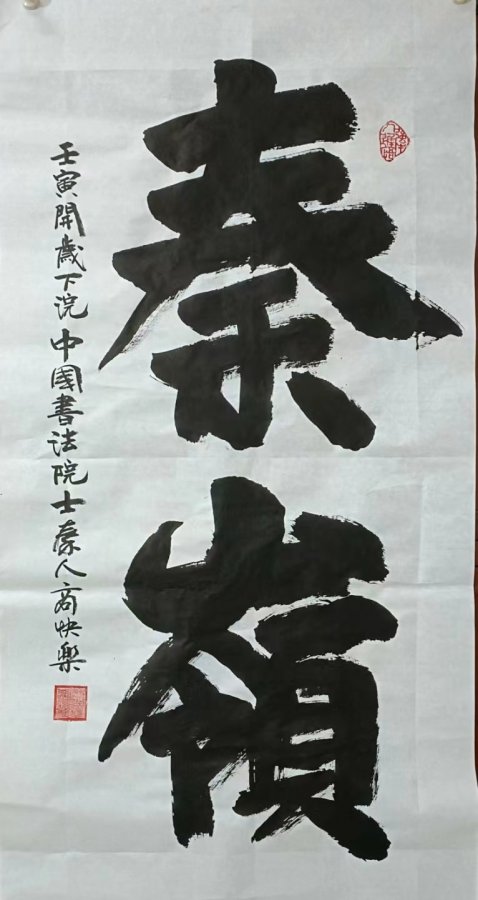 秦嶺
壬寅開歲下浣中國書法院士秦人商快樂